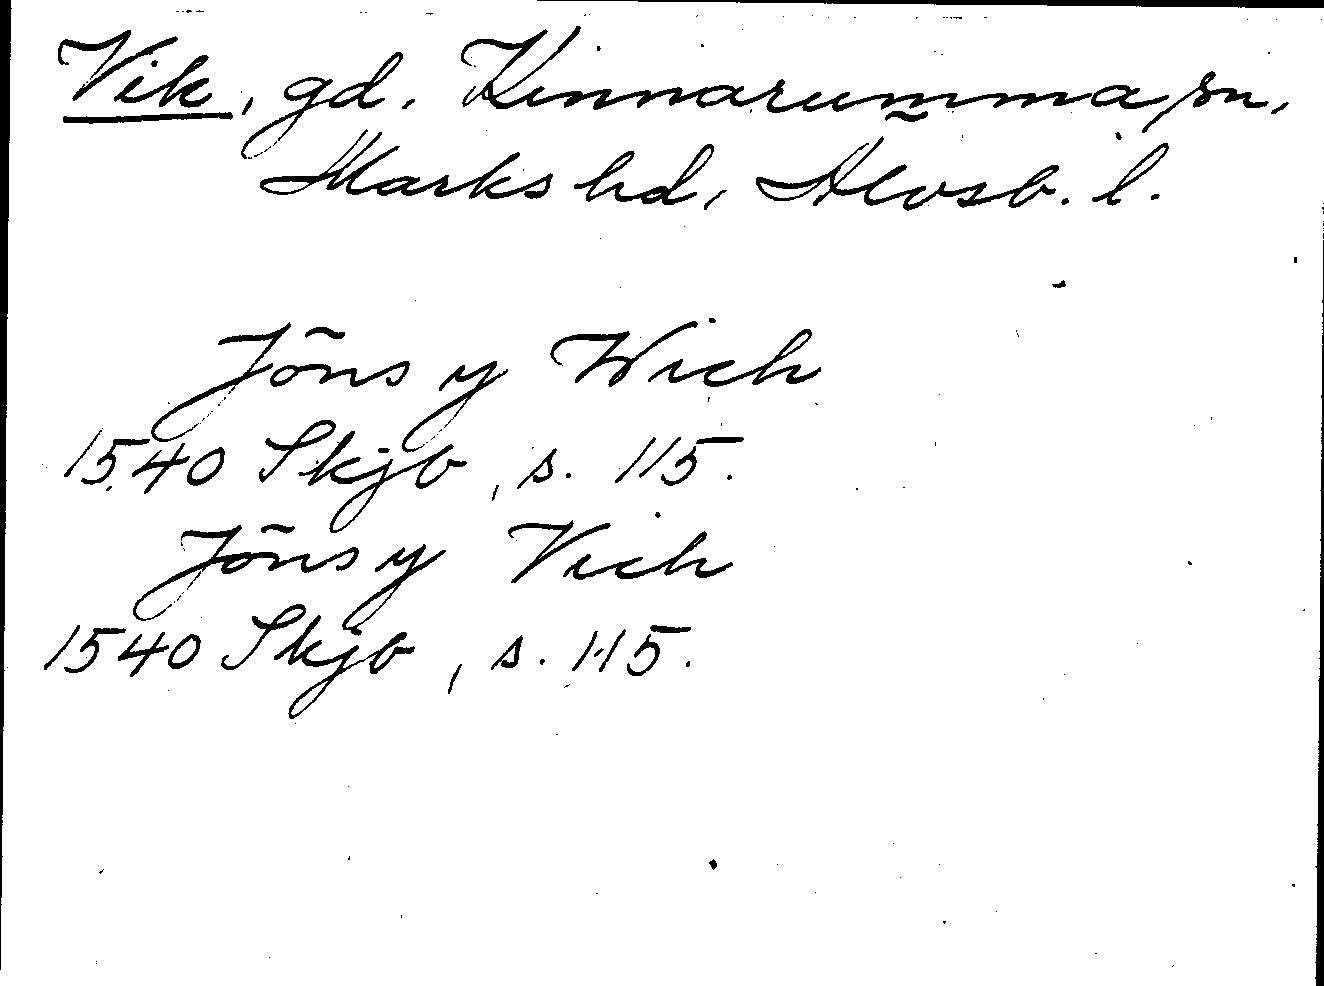 Vik, gd. Kinnarumma sn,
Marks hd, Älvsb. l.
Jöns y Wich
1540 Skjb, s. 115.
Jöns y Vich
1540 Skjb, s. 115.